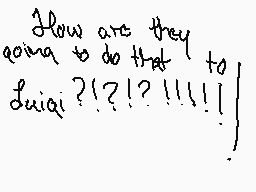 How are they
going to do that to
Luigi ?!?!?!!!!!!